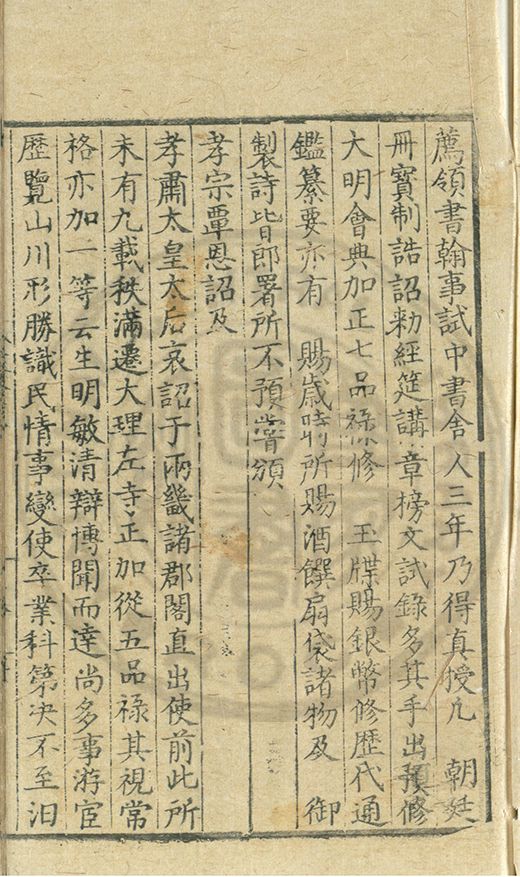 薦領書翰事試中書舍人三年乃得真授凡　朝廷
冊寶制誥詔勑經筵講章榜文試錄多其手出預修
大明會典加正七品祿修　玉牒賜銀幣修歷代通
鑑纂要亦有　賜歲時所賜酒饌扇袋諸物及　御
製詩皆郎署所不預嘗頒
孝宗覃恩詔及
孝肅太皇太后哀詔于兩畿諸郡閣直出使前此所
未有九載秩滿遷大理左寺正加從五品祿其視常
格亦加一等云生明敏清辯博聞而達尚多事游宦
歷覽山川形勝識民情事變使卒業科第决不至汩